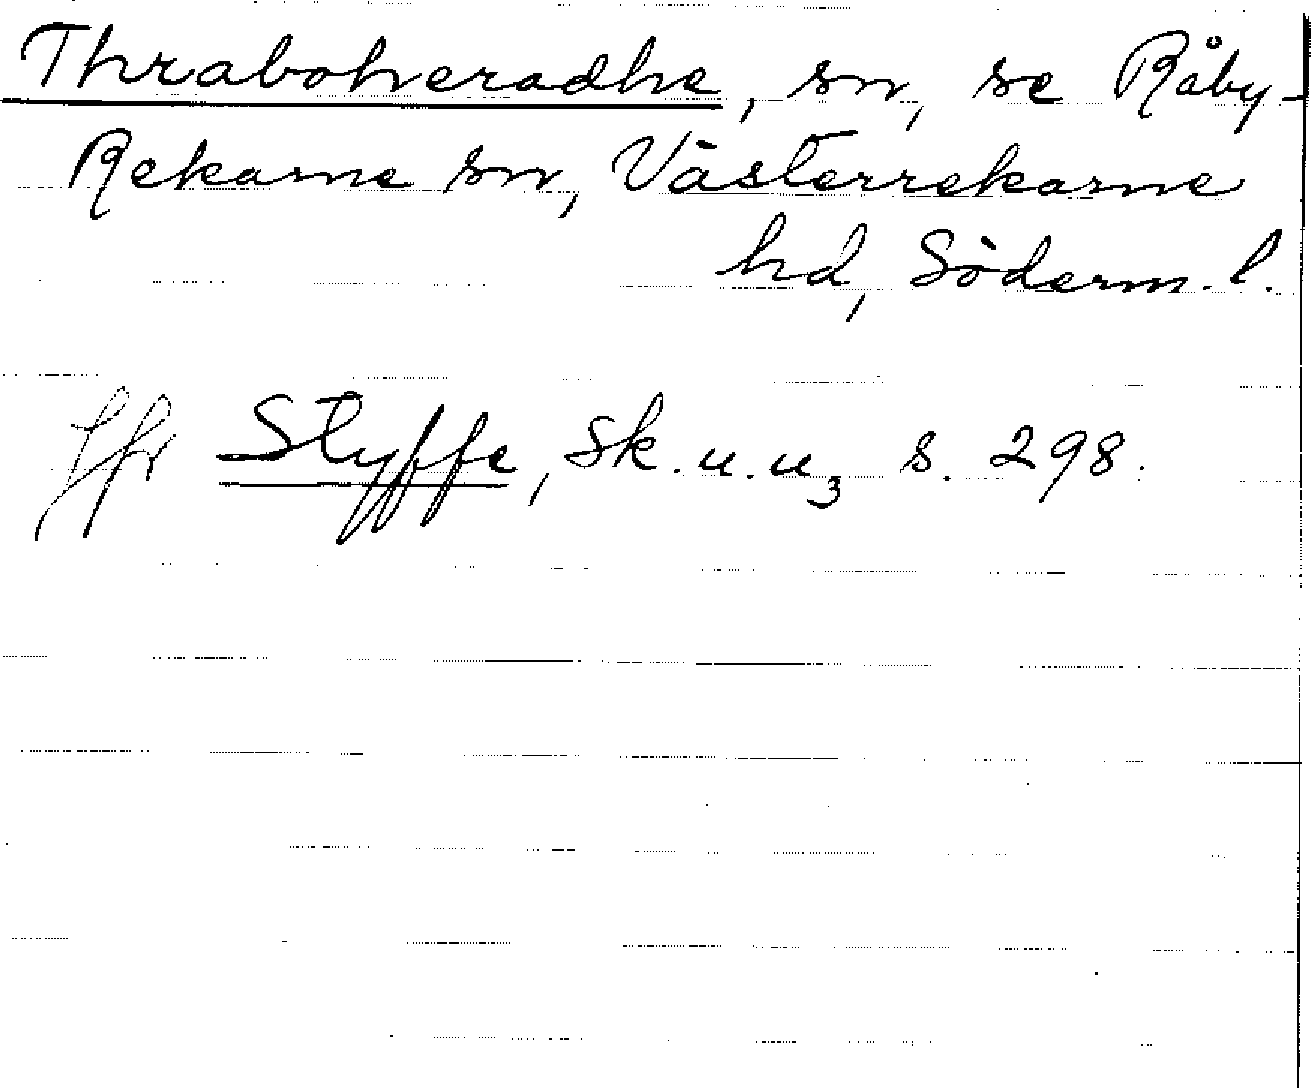 Thraboheradhe, sn, se Råby-
Rekarne sn, Västerrekarne
hd, Söderm. l.
Jfr Styffe, Sk. u. u3 s. 298.